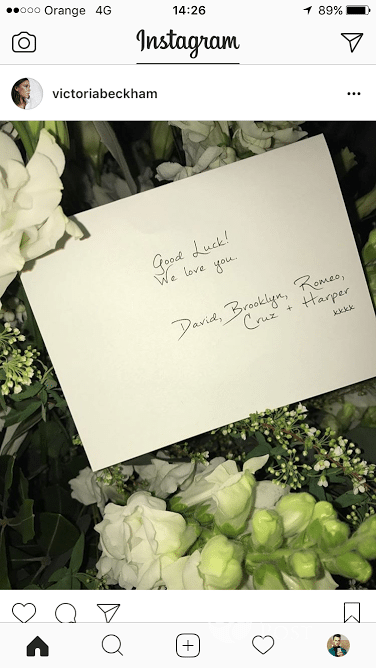 Orange 4G 14:26 89%
Instagram
victoriabeckham
Good Luck!
We love you.
David, Brooklyn, Romeo,
Cruz + Harper
xxxx